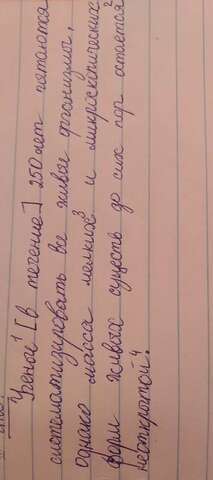 Ученые¹ [в течение] 250 лет пытаются
систематизировать все живые организмы,
однако масса мелких³ и микроскопических
форм живых существ до сих пор остается²
неоткрытой⁴.